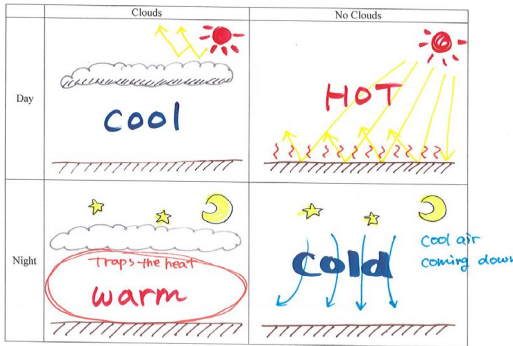 Clouds
No Clouds
Day
cool
HOT
Night
Traps the heat
warm
cold
Cool air
coming down